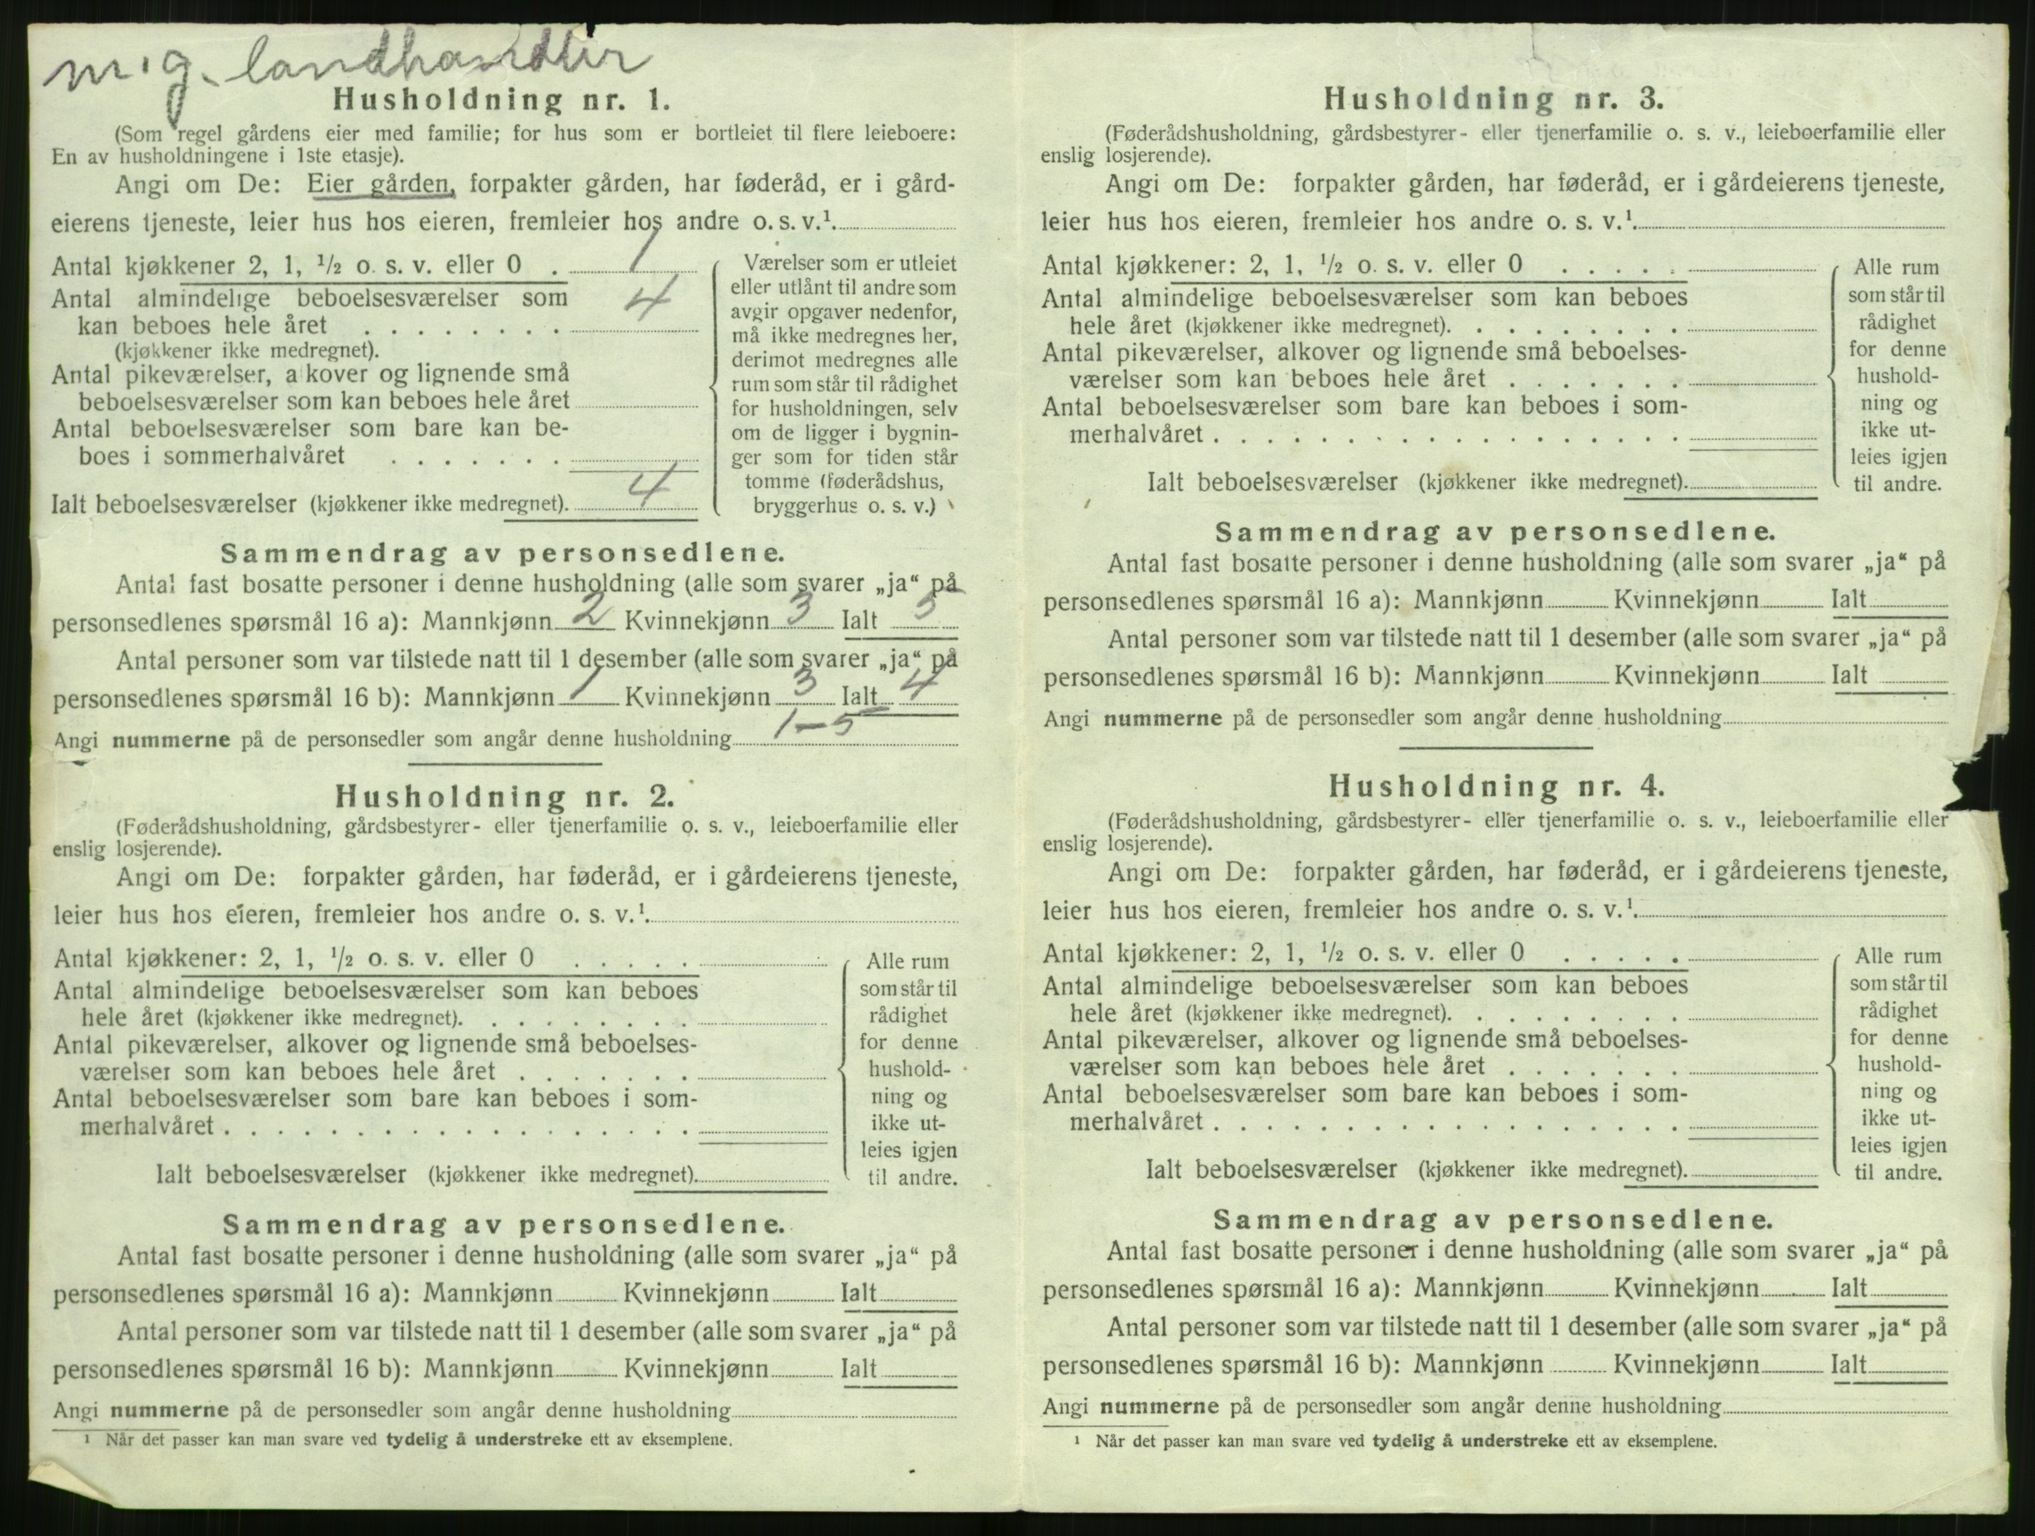 m.g. landhandler
Husholdning nr. 1.
(Som regel gårdens eier med familie; for hus som er bortleiet til flere leieboere:
En av husholdningene i 1ste etasje).
Angi om De: Eier gården, forpakter gården, har føderåd, er i gård-
eierens tjeneste, leier hus hos eieren, fremleier hos andre o. s. v.¹
Antal kjøkkener 2, 1, ½ o. s. v. eller 0 . 1
Antal almindelige beboelsesværelser som
kan beboes hele året . . . . . . . . 4
(kjøkkener ikke medregnet).
Antal pikeværelser, a kover og lignende små
beboelsesværelser som kan beboes hele året
Antal beboelsesværelser som bare kan be-
boes i sommerhalvåret . . . . . . .
Ialt beboelsesværelser (kjøkkener ikke medregnet). 4
Værelser som er utleiet
eller utlånt til andre som
avgir opgaver nedenfor,
må ikke medregnes her,
derimot medregnes alle
rum som står til rådighet
for husholdningen, selv
om de ligger i bygnin-
ger som for tiden står
tomme (føderådshus,
bryggerhus o. s. v.)
Sammendrag av personsedlene.
Antal fast bosatte personer i denne husholdning (alle som svarer „ja“ på
personsedlenes spørsmål 16 a): Mannkjønn 2 Kvinnekjønn 3 Ialt 5
Antal personer som var tilstede natt til 1 desember (alle som svarer „ja“ på
personsedlenes spørsmål 16 b): Mannkjønn 1 Kvinnekjønn 3 Ialt 4
Angi nummerne på de personsedler som angår denne husholdning 1-5
Husholdning nr. 2.
(Føderådshusholdning, gårdsbestyrer- eller tjenerfamilie o. s. v., leieboerfamilie eller
enslig losjerende).
Angi om De: forpakter gården, har føderåd, er i gårdeierens tjeneste,
leier hus hos eieren, fremleier hos andre o. s. v.¹
Antal kjøkkener: 2, 1, ½ o. s. v. eller 0 . . . . .
Antal almindelige beboelsesværelser som kan beboes
hele året (kjøkkener ikke medregnet). . . . . . . . .
Antal pikeværelser, alkover og lignende små beboelses-
værelser som kan beboes hele året . . . . . . .
Antal beboelsesværelser som bare kan beboes i som-
merhalvåret . . . . . . . . . . . . . . . . . .
Ialt beboelsesværelser (kjøkkener ikke medregnet).
Alle rum
som står til
rådighet
for denne
hushold-
ning og
ikke ut-
leies igjen
til andre.
Sammendrag av personsedlene.
Antal fast bosatte personer i denne husholdning (alle som svarer „ja“ på
personsedlenes spørsmål 16 a): Mannkjønn Kvinnekjønn Ialt
Antal personer som var tilstede natt til 1 desember (alle som svarer „ja“ på
personsedlenes spørsmål 16 b): Mannkjønn Kvinnekjønn Ialt
Angi nummerne på de personsedler som angår denne husholdning
¹ Når det passer kan man svare ved tydelig å understreke ett av eksemplene.
Husholdning nr. 3.
(Føderådshusholdning, gårdsbestyrer- eller tjenerfamilie o. s. v., leieboerfamilie eller
enslig losjerende).
Angi om De: forpakter gården, har føderåd, er i gårdeierens tjeneste,
leier hus hos eieren, fremleier hos andre o. s. v.¹
Antal kjøkkener: 2, 1, ½ o. s. v. eller 0 . . . . .
Antal almindelige beboelsesværelser som kan beboes
hele året (kjøkkener ikke medregnet). . . . . . . . .
Antal pikeværelser, alkover og lignende små beboelses-
værelser som kan beboes hele året . . . . . . .
Antal beboelsesværelser som bare kan beboes i som-
merhalvåret . . . . . . . . . . . . . . . . . .
Ialt beboelsesværelser (kjøkkener ikke medregnet).
Alle rum
som står til
rådighet
for denne
hushold-
ning og
ikke ut-
leies igjen
til andre.
Sammendrag av personsedlene.
Antal fast bosatte personer i denne husholdning (alle som svarer „ja“ på
personsedlenes spørsmål 16 a): Mannkjønn Kvinnekjønn Ialt
Antal personer som var tilstede natt til 1 desember (alle som svarer „ja“ på
personsedlenes spørsmål 16 b): Mannkjønn Kvinnekjønn Ialt
Angi nummerne på de personsedler som angår denne husholdning
Husholdning nr. 4.
(Føderådshusholdning, gårdsbestyrer- eller tjenerfamilie o. s. v., leieboerfamilie eller
enslig losjerende).
Angi om De: forpakter gården, har føderåd, er i gårdeierens tjeneste,
leier hus hos eieren, fremleier hos andre o. s. v.¹
Antal kjøkkener: 2, 1, ½ o. s. v. eller 0 . . . . .
Antal almindelige beboelsesværelser som kan beboes
hele året (kjøkkener ikke medregnet). . . . . . . . .
Antal pikeværelser, alkover og lignende små beboelses-
værelser som kan beboes hele året . . . . . . .
Antal beboelsesværelser som bare kan beboes i som-
merhalvåret . . . . . . . . . . . . . . . . . .
Ialt beboelsesværelser (kjøkkener ikke medregnet).
Alle rum
som står til
rådighet
for denne
hushold-
ning og
ikke ut-
leies igjen
til andre.
Sammendrag av personsedlene.
Antal fast bosatte personer i denne husholdning (alle som svarer „ja“ på
personsedlenes spørsmål 16 a): Mannkjønn Kvinnekjønn Ialt
Antal personer som var tilstede natt til 1 desember (alle som svarer „ja“ på
personsedlenes spørsmål 16 b): Mannkjønn Kvinnekjønn Ialt
Angi nummerne på de personsedler som angår denne husholdning
¹ Når det passer kan man svare ved tydelig å understreke ett av eksemplene.